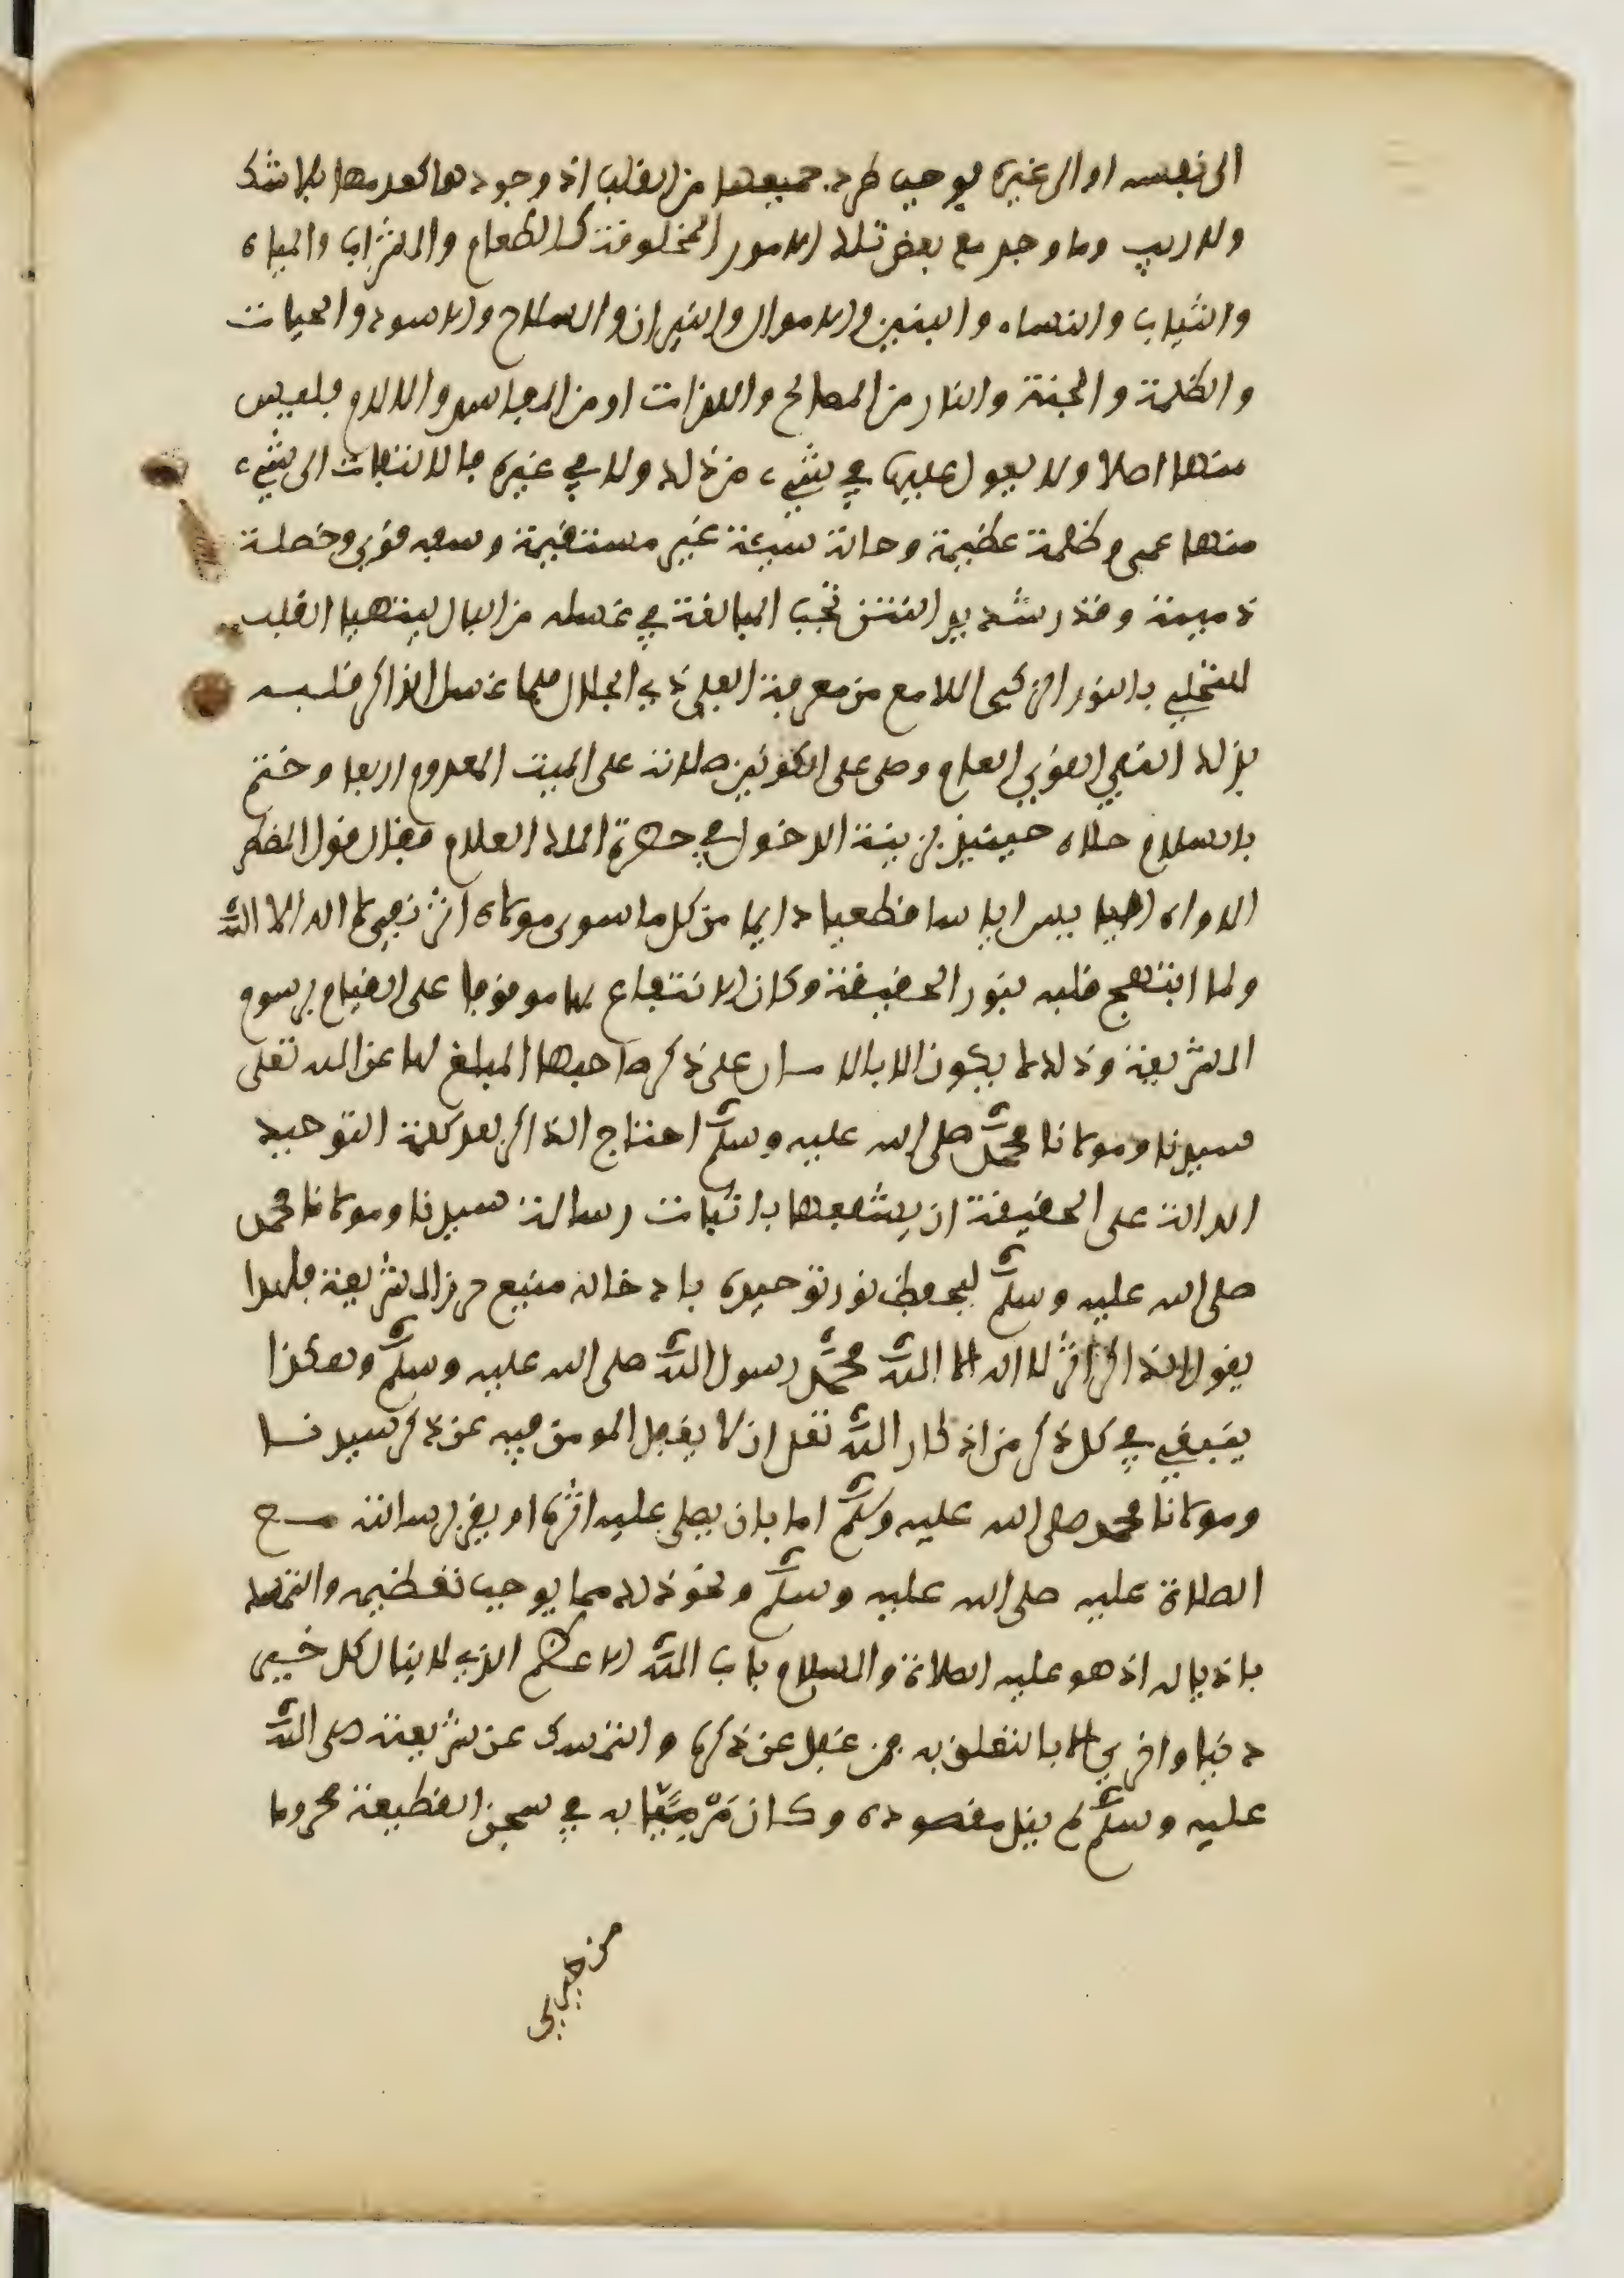 الى نفسه او الى غيره يوجب طرد جميعها من القلب اذ وجودها كعدمها بلا شك
ولا ريب وما وجد مع بعض تلك الامور المخلوقة كالطعام والشراب والمياه
والثياب والنساء والبنين والاموال والنيران والسلاح والاسود والحيات
والظلمة والجنة والنار من المصالح واللذات او من المفاسد والالام فليس
منها اصلا ولا يعول عليها في شيء من ذلك ولا في غيره فالالتفات الى شيء
منها عمى وظلمة عظيمة وحالة سيئة غير مستقيمة وسفه قوي وخصلة
ذميمة وقذر شديد النتن تجب المبالغة في غسله من البال ليتهيا القلب
للتحلي بالنور الزكي اللامع من معرفة العلي ذي الجلال فلما غسل الذاكر قلبه
بذلك النفي القوي العام وصلى على الكونين صلاته على الميت المعدوم اربعا وختم
بالسلام حلاه حينئذ بزينة الدخول في حضرة الملك العلام فقال قول المضطر
الاواه الايس اياسا قطعيا دايما من كل ما سوى مولاه اثر نفي لا اله الا الله
ولما ابتهج قلبه بنور الحقيقة وكان الانتفاع بها موقوفا على القيام برسوم
الشريعة وذلك لا يكون الا بالا سان على ذكر صاحبها المبلغ لها عن الله تعلى
سيدنا ومولانا محمد صلى الله عليه وسلم احتاج الذاكر بعد كلمة التوحيد
الدالة على الحقيقة ان يشفعها باثبات رسالة سيدنا ومولانا محمد
صلى الله عليه وسلم ليحفظ نور توحيده بادخاله منيع حرز الشريعة فلهذا
يقول الذاكر اثر لا اله الا الله محمد رسول الله صلى الله عليه وسلم وهكذا
ينبغي في كل ذكر من اذكار الله تعلى ان لا يغفل المومن فيه عن ذكر سيدنا
ومولانا محمد صلى الله عليه وسلم اما بان يصلي عليه اثره او يقر برسالته مع
الصلاة عليه صلى الله عليه وسلم ونحو ذلك مما يوجب تعظيمه والتمسك
باذياله اذ هو عليه الصلاة والسلام باب الله الاعظم الذي لا ينال كل خير
دنيا واخرى الا بالتعلق به فمن غفل عن ذكره والتمسك عن شريعته صلى الله
عليه وسلم لم ينل مقصوده وكان مرميا به في سجن القطيعة محروما
من خيري